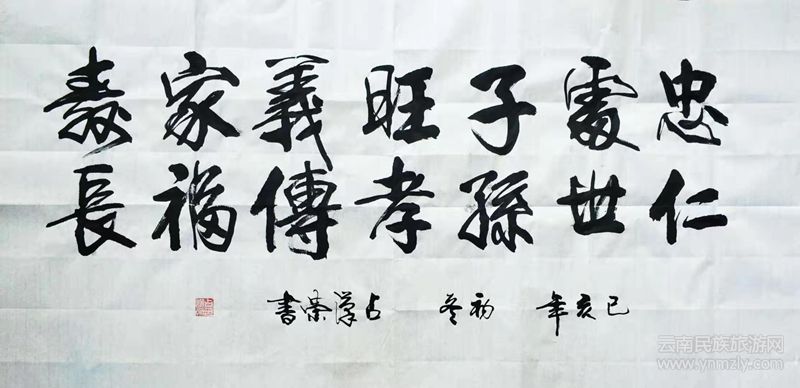 忠仁
處世
子孫
旺孝
義傳
家福
壽長
己亥年 初冬 占漢榮書
云南民族旅游网
www.ynmzly.com